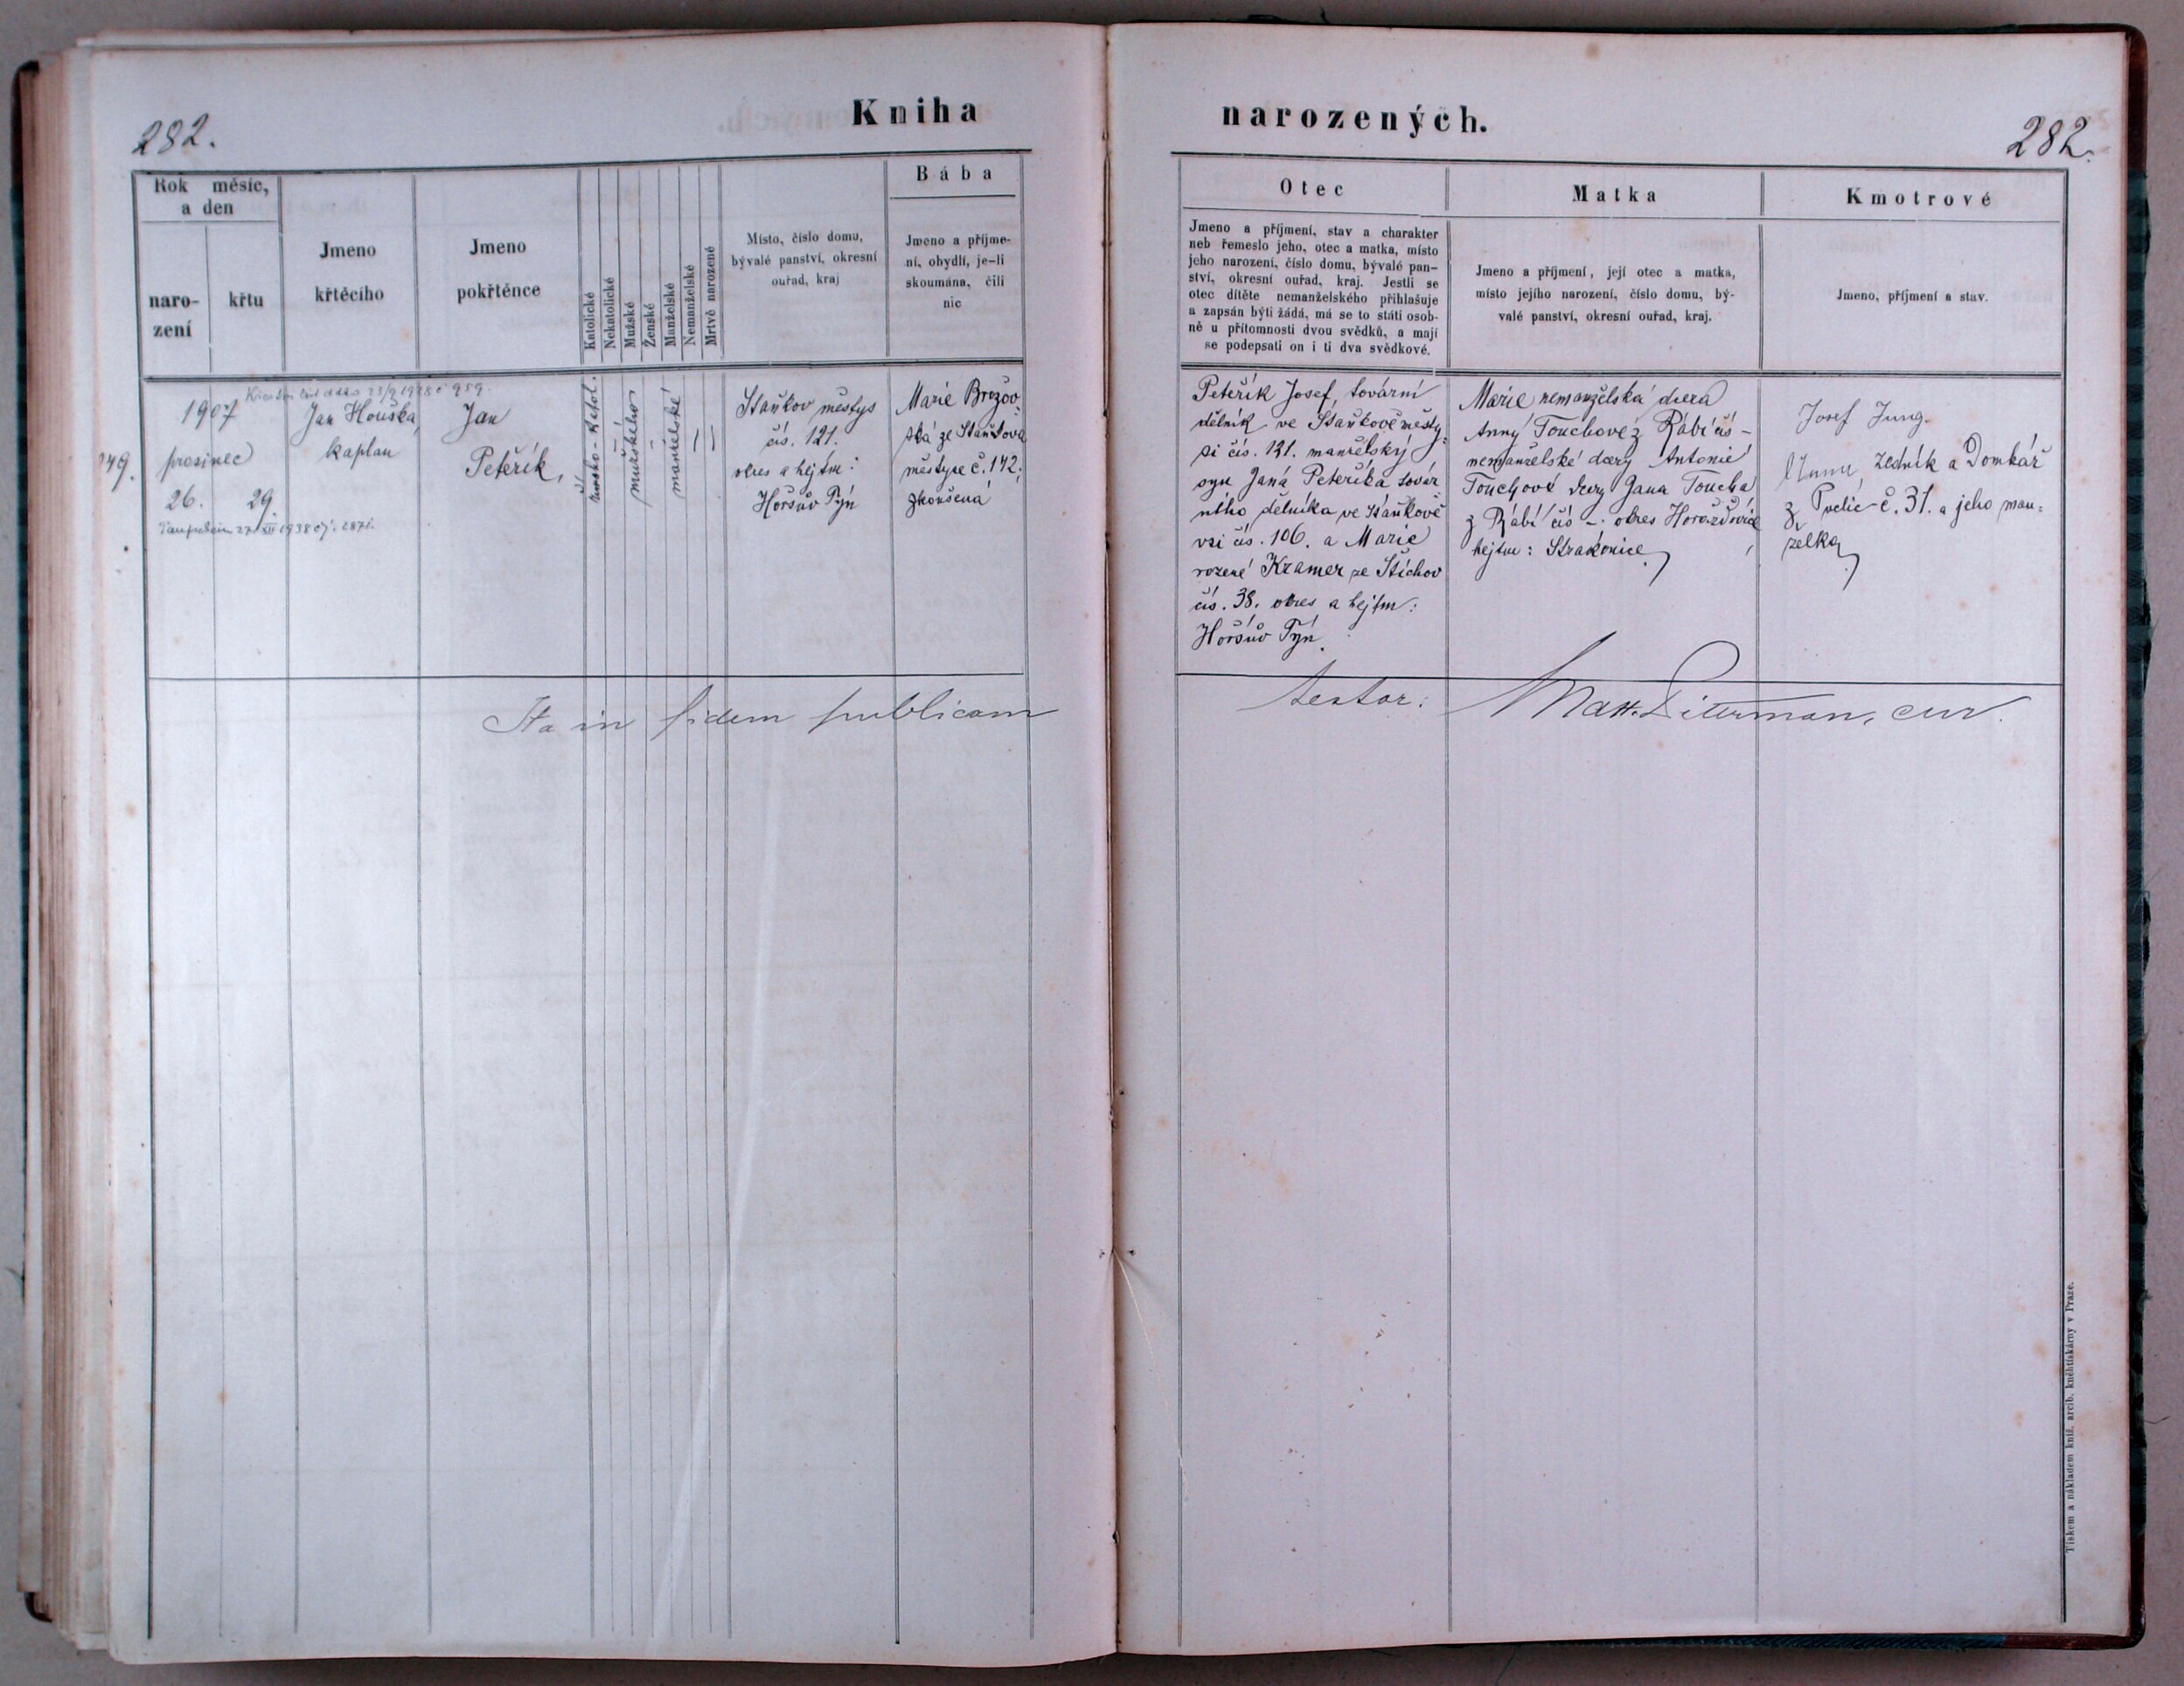 282.
Kniha
Rok měsíc,
a den
naro-
zení
křtu
Jmeno
křtěcího
Jmeno
pokřtěnce
Katolické
Nekatolické
Mužské
Ženské
Manželské
Nemanželské
Mrtvě narozené
Místo, číslo domu,
bývalé panství, okresní
ouřad, kraj
Bába
Jmeno a příjme-
ní, obydlí, je-li
skoumána, čili
nic
149.
1907
prosinec
26. 29.
Jan Houška
kaplan
Jan
Peteřík,
římsko-katol.
mužského
manželské
Staňkov městys
čís. 121.
okres a hejtm:
Horšův Týn
Marie Brožov-
ská ze Staňkova
městyse č. 142.
zkoušená
Ita in fidem publicam
narozených.
282.
Otec
Jmeno a příjmení, stav a charakter
neb řemeslo jeho, otec a matka, místo
jeho narození, číslo domu, bývalé pan-
ství, okresní ouřad, kraj. Jestli se
otec dítěte nemanželského přihlašuje
a zapsán býti žádá, má se to státi osob-
ně u přítomnosti dvou svědků, a mají
se podepsati on i ti dva svědkové.
Matka
Jmeno a příjmení, její otec a matka,
místo jejího narození, číslo domu, bý-
valé panství, okresní ouřad, kraj.
Kmotrové
Jmeno, příjmení a stav.
Peteřík Josef, tovární
dělník ve Staňkově městy-
si čís. 121. manželský
syn Jana Peteříka továr
ního dělníka ve Staňkově
vsi čís. 106. a Marie
rozené Kramer ze Štichov
čís. 38. okres a hejtm:
Horšův Týn.
Marie nemanželská dcera
Anny Touchove z Rábí čís -
nemanželské dcery Antonie
Touchové dcery Jana Toucha
z Rábí čís -. okres Horažďovice
hejtm: Strakonice
Josef Jung.
zedník a Domkář
z Puclic č. 31. a jeho man-
želka
testor: Matt. Diterman, cur.
Tiskem a nákladem kníž. arcib. kněhtiskárny v Praze.